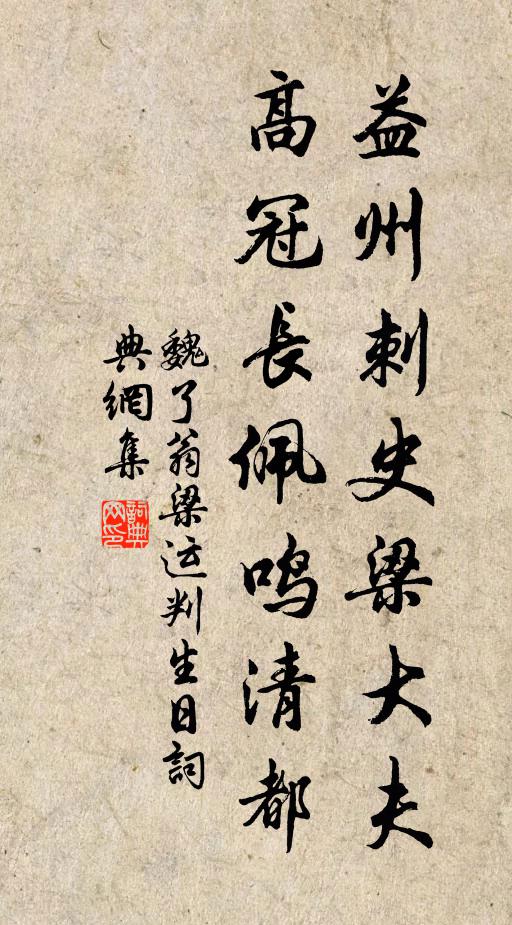 益州刺史梁大夫
高冠長佩鸣清都
魏了翁梁运判生日詞
典網集
詞典网印